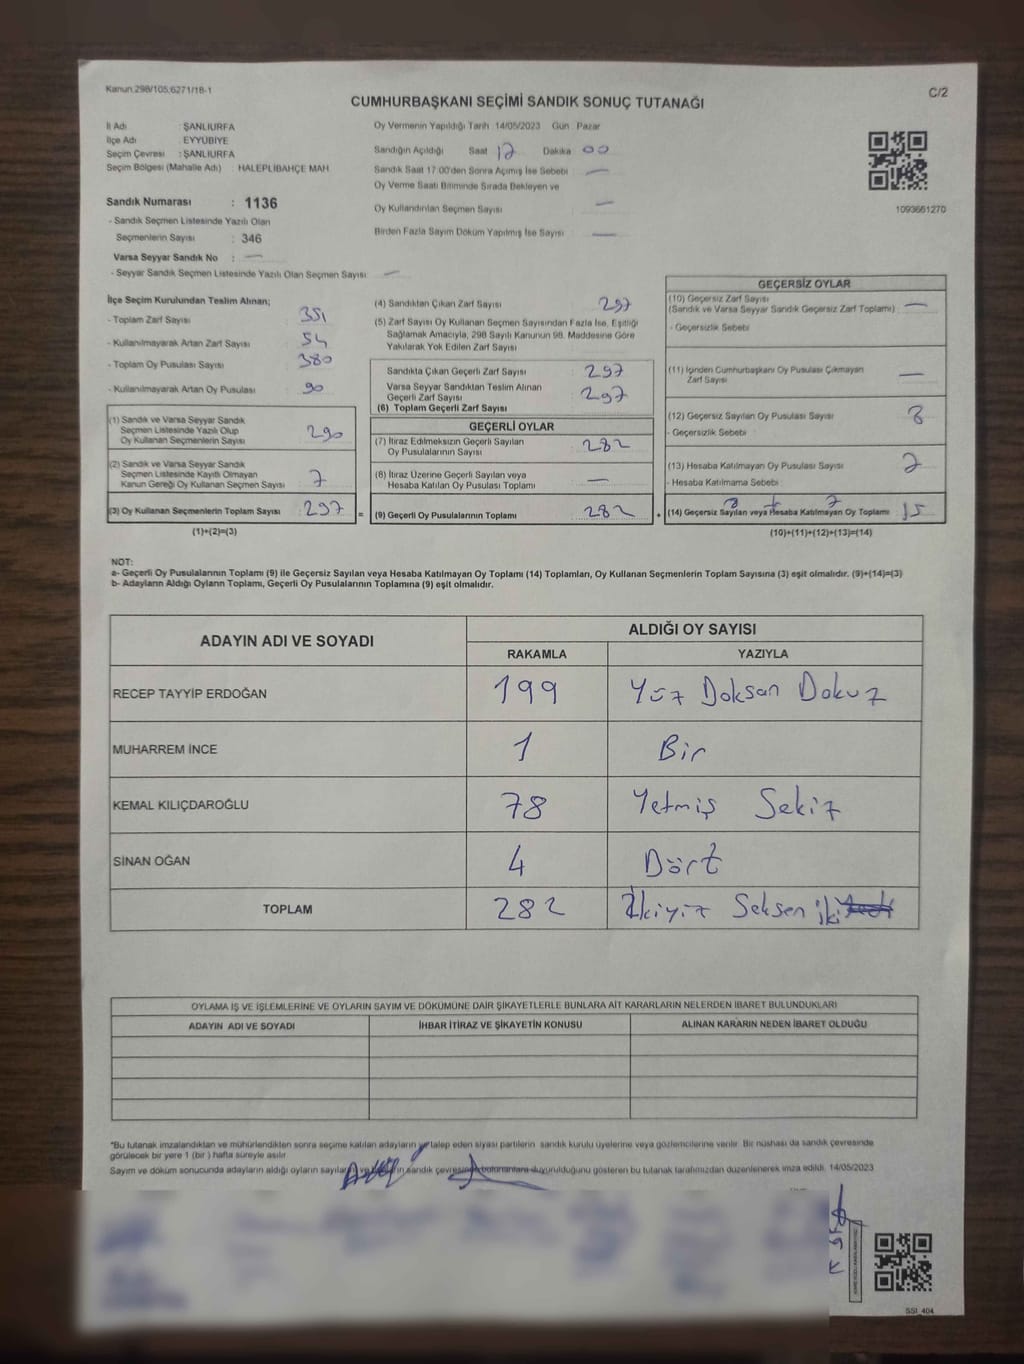 Kanun:298/105;6271/18-1
C/2
CUMHURBAŞKANI SEÇİMİ SANDIK SONUÇ TUTANAĞI
İl Adı : ŞANLIURFA
İlçe Adı EYYÜBİYE
Seçim Çevresi : ŞANLIURFA
Seçim Bölgesi (Mahalle Adı) : HALEPLİBAHÇE MAH
Oy Vermenin Yapıldığı Tarih :14/05/2023 Gün : Pazar
Sandığın Açıldığı Saat 17 Dakika 00
Sandık Saat 17:00'den Sonra Açımış İse Sebebi —
Oy Verme Saati Bitiminde Sırada Bekleyen ve
Oy Kullandırılan Seçmen Sayısı —
Birden Fazla Sayım Döküm Yapılmış İse Sayısı —
1093661270
Sandık Numarası : 1136
- Sandık Seçmen Listesinde Yazılı Olan
Seçmenlerin Sayısı : 346
Varsa Seyyar Sandık No : —
- Seyyar Sandık Seçmen Listesinde Yazılı Olan Seçmen Sayısı —
İlçe Seçim Kurulundan Teslim Alınan;
- Toplam Zarf Sayısı : 351
- Kullanılmayarak Artan Zarf Sayısı : 54
- Toplam Oy Pusulası Sayısı : 380
- Kullanılmayarak Artan Oy Pusulası : 90
(1) Sandık ve Varsa Seyyar Sandık
Seçmen Listesinde Yazılı Olup
Oy Kullanan Seçmenlerin Sayısı : 290
(2) Sandık ve Varsa Seyyar Sandık
Seçmen Listesinde Kayıtlı Olmayan
Kanun Gereği Oy Kullanan Seçmen Sayısı : 7
(3) Oy Kullanan Seçmenlerin Toplam Sayısı : 297 =
(1)+(2)=(3)
(4) Sandıktan Çıkan Zarf Sayısı 297
(5) Zarf Sayısı Oy Kullanan Seçmen Sayısından Fazla İse, Eşitliği
Sağlamak Amacıyla, 298 Sayılı Kanunun 98. Maddesine Göre
Yakılarak Yok Edilen Zarf Sayısı :
Sandıkta Çıkan Geçerli Zarf Sayısı : 297
Varsa Seyyar Sandıktan Teslim Alınan
Geçerli Zarf Sayısı : 297
(6) Toplam Geçerli Zarf Sayısı
GEÇERLİ OYLAR
(7) İtiraz Edilmeksizin Geçerli Sayılan
Oy Pusulalarının Sayısı : 282
(8) İtiraz Üzerine Geçerli Sayılan veya
Hesaba Katılan Oy Pusulası Toplamı : —
(9) Geçerli Oy Pusulalarının Toplamı : 282 +
GEÇERSİZ OYLAR
(10) Geçersiz Zarf Sayısı
(Sandık ve Varsa Seyyar Sandık Geçersiz Zarf Toplamı) : —
- Geçersizlik Sebebi :
(11) İçinden Cumhurbaşkanı Oy Pusulası Çıkmayan
Zarf Sayısı —
(12) Geçersiz Sayılan Oy Pusulası Sayısı : 8
- Geçersizlik Sebebi :
(13) Hesaba Katılmayan Oy Pusulası Sayısı : 7
- Hesaba Katılmama Sebebi :
8 + 7
(14) Geçersiz Sayılan veya Hesaba Katılmayan Oy Toplamı : 15
(10)+(11)+(12)+(13)=(14)
NOT:
a- Geçerli Oy Pusulalarının Toplamı (9) ile Geçersiz Sayılan veya Hesaba Katılmayan Oy Toplamı (14) Toplamları, Oy Kullanan Seçmenlerin Toplam Sayısına (3) eşit olmalıdır. (9)+(14)=(3)
b- Adayların Aldığı Oyların Toplamı, Geçerli Oy Pusulalarının Toplamına (9) eşit olmalıdır.
ADAYIN ADI VE SOYADI
ALDIĞI OY SAYISI
RAKAMLA YAZIYLA
RECEP TAYYİP ERDOĞAN 199 Yüz Doksan Dokuz
MUHARREM İNCE 1 Bir
KEMAL KILIÇDAROĞLU 78 Yetmiş Sekiz
SİNAN OĞAN 4 Dört
TOPLAM 282 İkiyüz Seksen iki
OYLAMA İŞ VE İŞLEMLERİNE VE OYLARIN SAYIM VE DÖKÜMÜNE DAİR ŞİKAYETLERLE BUNLARA AİT KARARLARIN NELERDEN İBARET BULUNDUKLARI
ADAYIN ADI VE SOYADI İHBAR İTİRAZ VE ŞİKAYETİN KONUSU ALINAN KARARIN NEDEN İBARET OLDUĞU
*Bu tutanak imzalandıktan ve mühürlendikten sonra seçime katılan adayların ve talep eden siyasi partilerin sandık kurulu üyelerine veya gözlemcilerine verilir. Bir nüshası da sandık çevresinde
görülecek bir yere 1 (bir) hafta süreyle asılır
Sayım ve döküm sonucunda adayların aldığı oyların sandık duyurulduğunu gösteren bu tutanak tarafımızdan düzenlenerek imza edildi. 14/05/2023
SSI_404